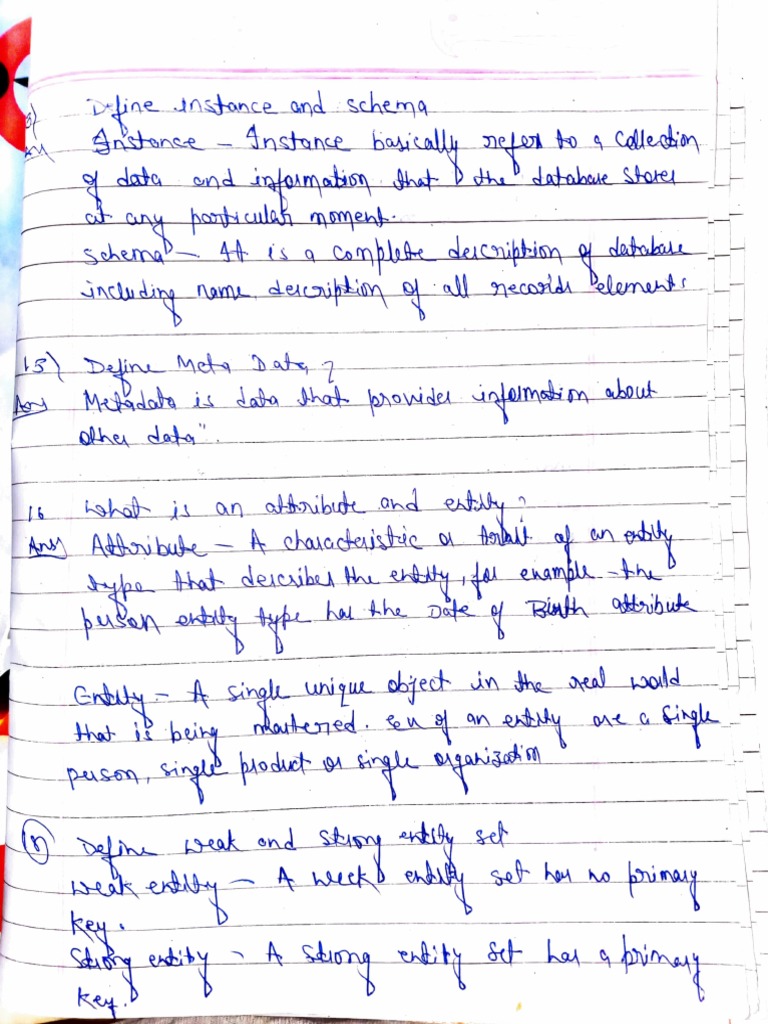 Define instance and schema
Instance - Instance basically refer to a collection
of data and information that the database stores
at any particular moment.
Schema - It is a complete description of database
including name, description of all records elements
15) Define Meta Data ?
Ans Metadata is data that provides information about
other data".
16 What is an attribute and entity ?
Ans) Attribute - A characteristic or trait of an entity
type that describes the entity, for example - the
person entity type has the Date of Birth attribute
Entity - A single unique object in the real world
that is being mastered. of an entity are a single
person, single product or single organization
Define weak and strong entity set
weak entity - A week entity set has no primary
key.
Strong entity - A strong entity set has a primary
key.